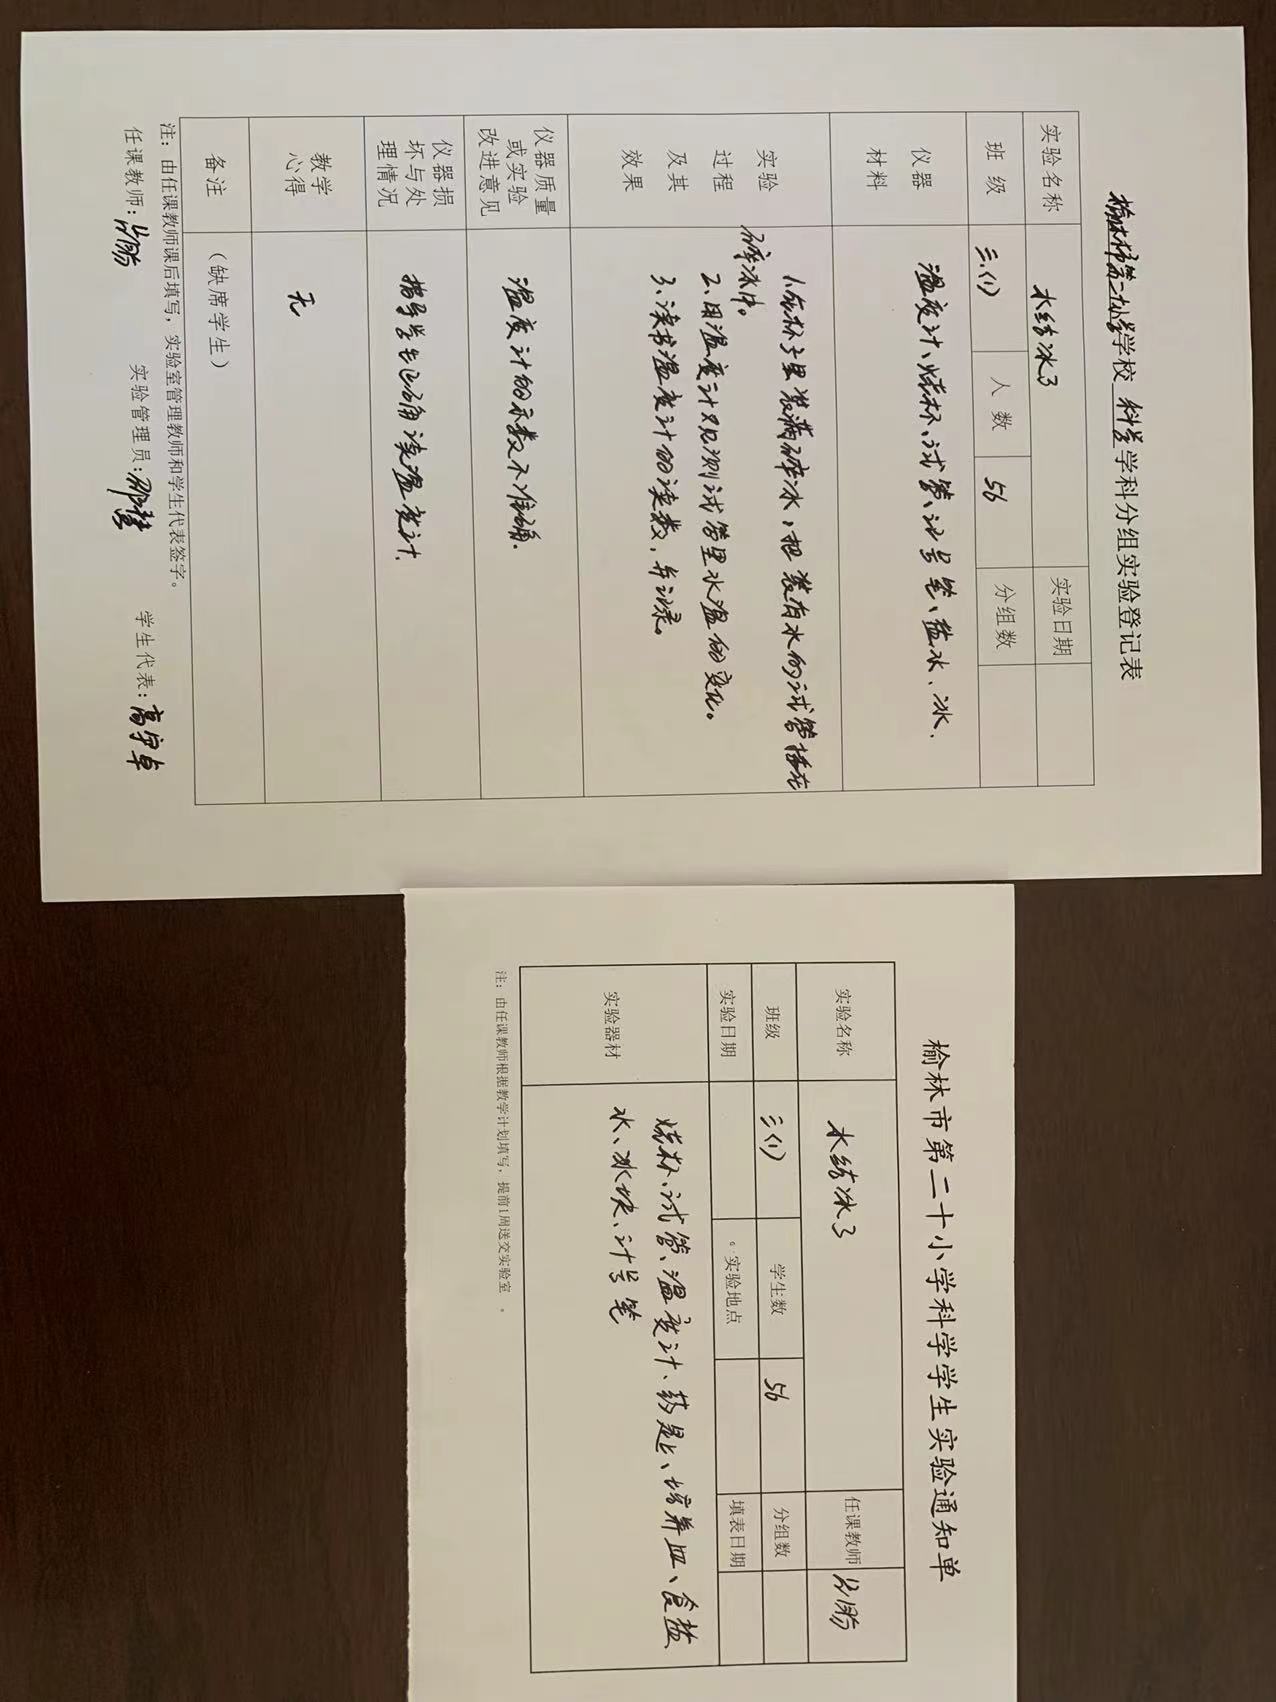 学校 科学学科分组实验登记表
实验名称 水结冰了 实验日期
班级 三.(1) 人数 56 分组数
仪器材料 温度计、烧杯、试管、记号笔、盐水、冰、
实验过程及其效果
1.在杯子里装满碎冰,把装有水的试管插在
碎冰中。
2.用温度计观测试管里水温的变化。
3.读书温度计的读数,并记录。
仪器质量或实验改进意见 温度计的示数不准确.
仪器损坏与处理情况 指导学生正确读温度计.
教学心得 无
备注 (缺席学生)
注:由任课教师课后填写,实验室管理教师和学生代表签字。
任课教师: 实验管理员: 学生代表:高宇卓
榆林市第二十小学科学学生实验通知单
实验名称 水结冰了 任课教师
班级 三(1) 学生数 56 分组数
实验日期 实验地点 填表日期
实验器材 烧杯、试管、温度计、药匙、培养皿、食盐
水、冰块、计号笔
注:由任课教师根据教学计划填写,提前1周送交实验室。